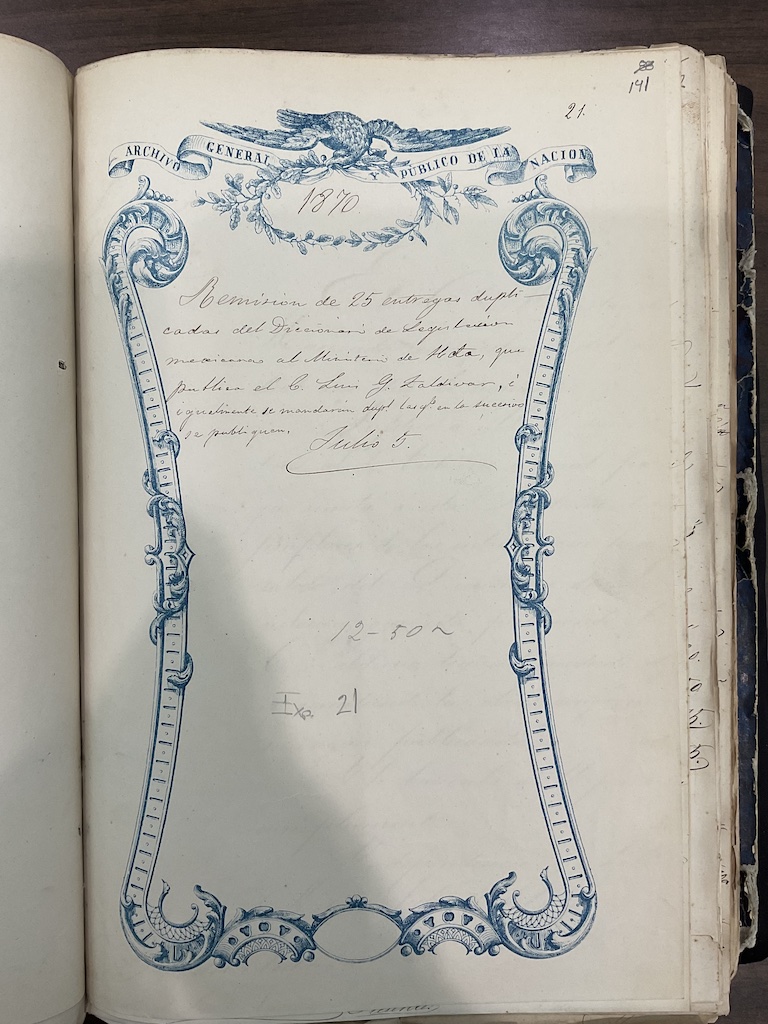 141
21.
ARCHIVO GENERAL Y PÚBLICO DE LA NACION
1870.
Remision de 25 entregas dupli-
cadas del Diccionario de Legislacion
mexicana al Ministerio de Hda, que
publica el C. Luis G. Zaldivar, é
igualmente se mandarán dupl. las q.e en lo succesivo
se publiquen.
Julio 5.
12-50
Exp. 21